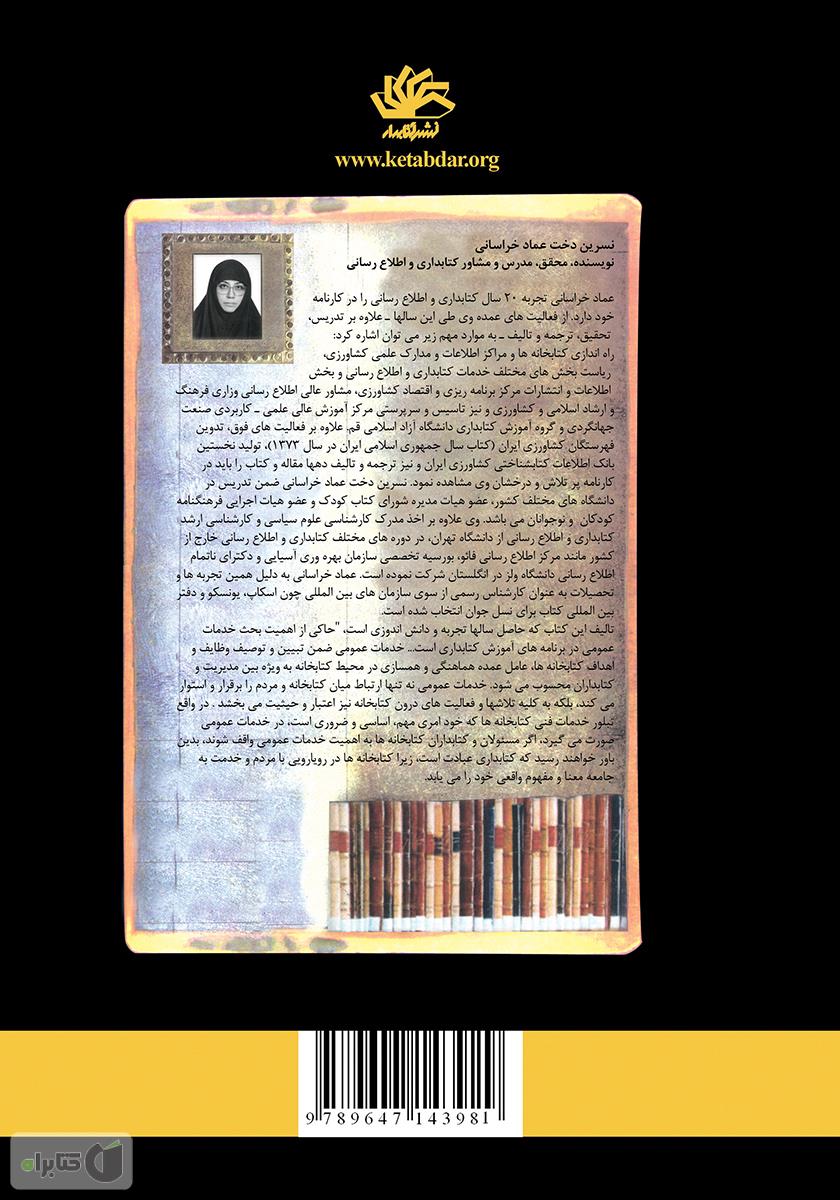 نشر کتابدار
www.ketabdar.org
نسرین دخت عماد خراسانی
نویسنده، محقق، مدرس و مشاور کتابداری و اطلاع رسانی
عماد خراسانی تجربه ۲۰ سال کتابداری و اطلاع رسانی را در کارنامه
خود دارد. از فعالیت های عمده وی طی این سالها ـ علاوه بر تدریس،
تحقیق، ترجمه و تالیف ـ به موارد مهم زیر می توان اشاره کرد:
راه اندازی کتابخانه ها و مراکز اطلاعات و مدارک علمی کشاورزی،
ریاست بخش های مختلف خدمات کتابداری و اطلاع رسانی و بخش
اطلاعات و انتشارات مرکز برنامه ریزی و اقتصاد کشاورزی، مشاور عالی اطلاع رسانی وزاری فرهنگ
و ارشاد اسلامی و کشاورزی و نیز تاسیس و سرپرستی مرکز آموزش عالی علمی ـ کاربردی صنعت
جهانگردی و گروه آموزش کتابداری دانشگاه آزاد اسلامی قم. علاوه بر فعالیت های فوق، تدوین
فهرستگان کشاورزی ایران (کتاب سال جمهوری اسلامی ایران در سال ۱۳۷۳)، تولید نخستین
بانک اطلاعات کتابشناختی کشاورزی ایران و نیز ترجمه و تالیف دهها مقاله و کتاب را باید در
کارنامه پر تلاش و درخشان وی مشاهده نمود. نسرین دخت عماد خراسانی ضمن تدریس در
دانشگاه های مختلف کشور، عضو هیات مدیره شورای کتاب کودک و عضو هیات اجرایی فرهنگنامه
کودکان و نوجوانان می باشد. وی علاوه بر اخذ مدرک کارشناسی علوم سیاسی و کارشناسی ارشد
کتابداری و اطلاع رسانی از دانشگاه تهران، در دوره های مختلف کتابداری و اطلاع رسانی خارج از
کشور مانند مرکز اطلاع رسانی فائو، بورسیه تخصصی سازمان بهره وری آسیایی و دکترای ناتمام
اطلاع رسانی دانشگاه ولز در انگلستان شرکت نموده است. عماد خراسانی به دلیل همین تجربه ها و
تحصیلات به عنوان کارشناس رسمی از سوی سازمان های بین المللی چون اسکاپ، یونسکو و دفتر
بین المللی کتاب برای نسل جوان انتخاب شده است.
تالیف این کتاب که حاصل سالها تجربه و دانش اندوزی است، "حاکی از اهمیت بحث خدمات
عمومی در برنامه های آموزش کتابداری است... خدمات عمومی ضمن تبیین و توصیف وظایف و
اهداف کتابخانه ها، عامل عمده هماهنگی و همسازی در محیط کتابخانه به ویژه بین مدیریت و
کتابداران محسوب می شود. خدمات عمومی نه تنها ارتباط میان کتابخانه و مردم را برقرار و استوار
می کند، بلکه به کلیه تلاشها و فعالیت های درون کتابخانه نیز اعتبار و حیثیت می بخشد . در واقع
تبلور خدمات فنی کتابخانه ها که خود امری مهم، اساسی و ضروری است، در خدمات عمومی
صورت می گیرد، اگر مسئولان و کتابداران کتابخانه ها به اهمیت خدمات عمومی واقف شوند، بدین
باور خواهند رسید که کتابداری عبادت است، زیرا کتابخانه ها در رویارویی با مردم و خدمت به
جامعه معنا و مفهوم واقعی خود را می یابد.
9 789647 143981
کتابراه